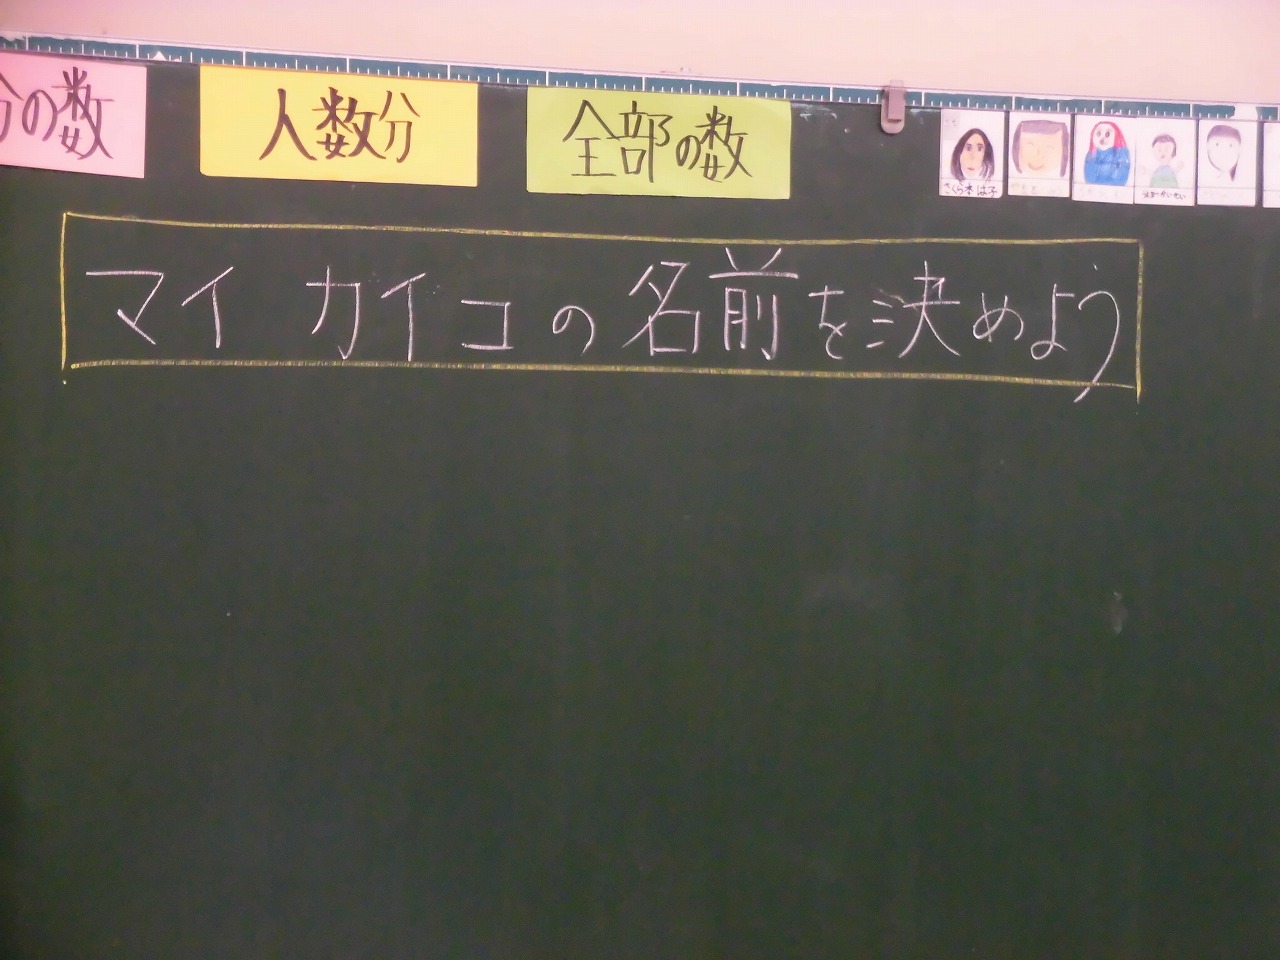 分の数
人数分
全部の数
さくら木は子
マイ カイコの名前を決めよう